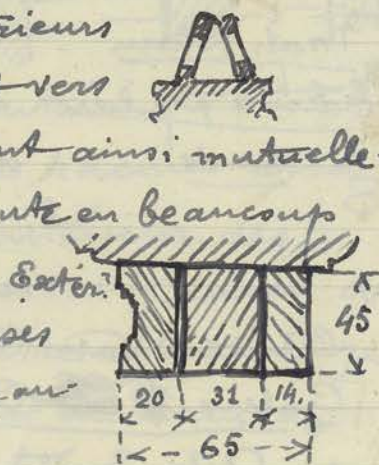 rieurs
vers
nt ainsi mutuelle-
ute en beaucoup
Extér.
ses
au-
45
20 31 14.
65